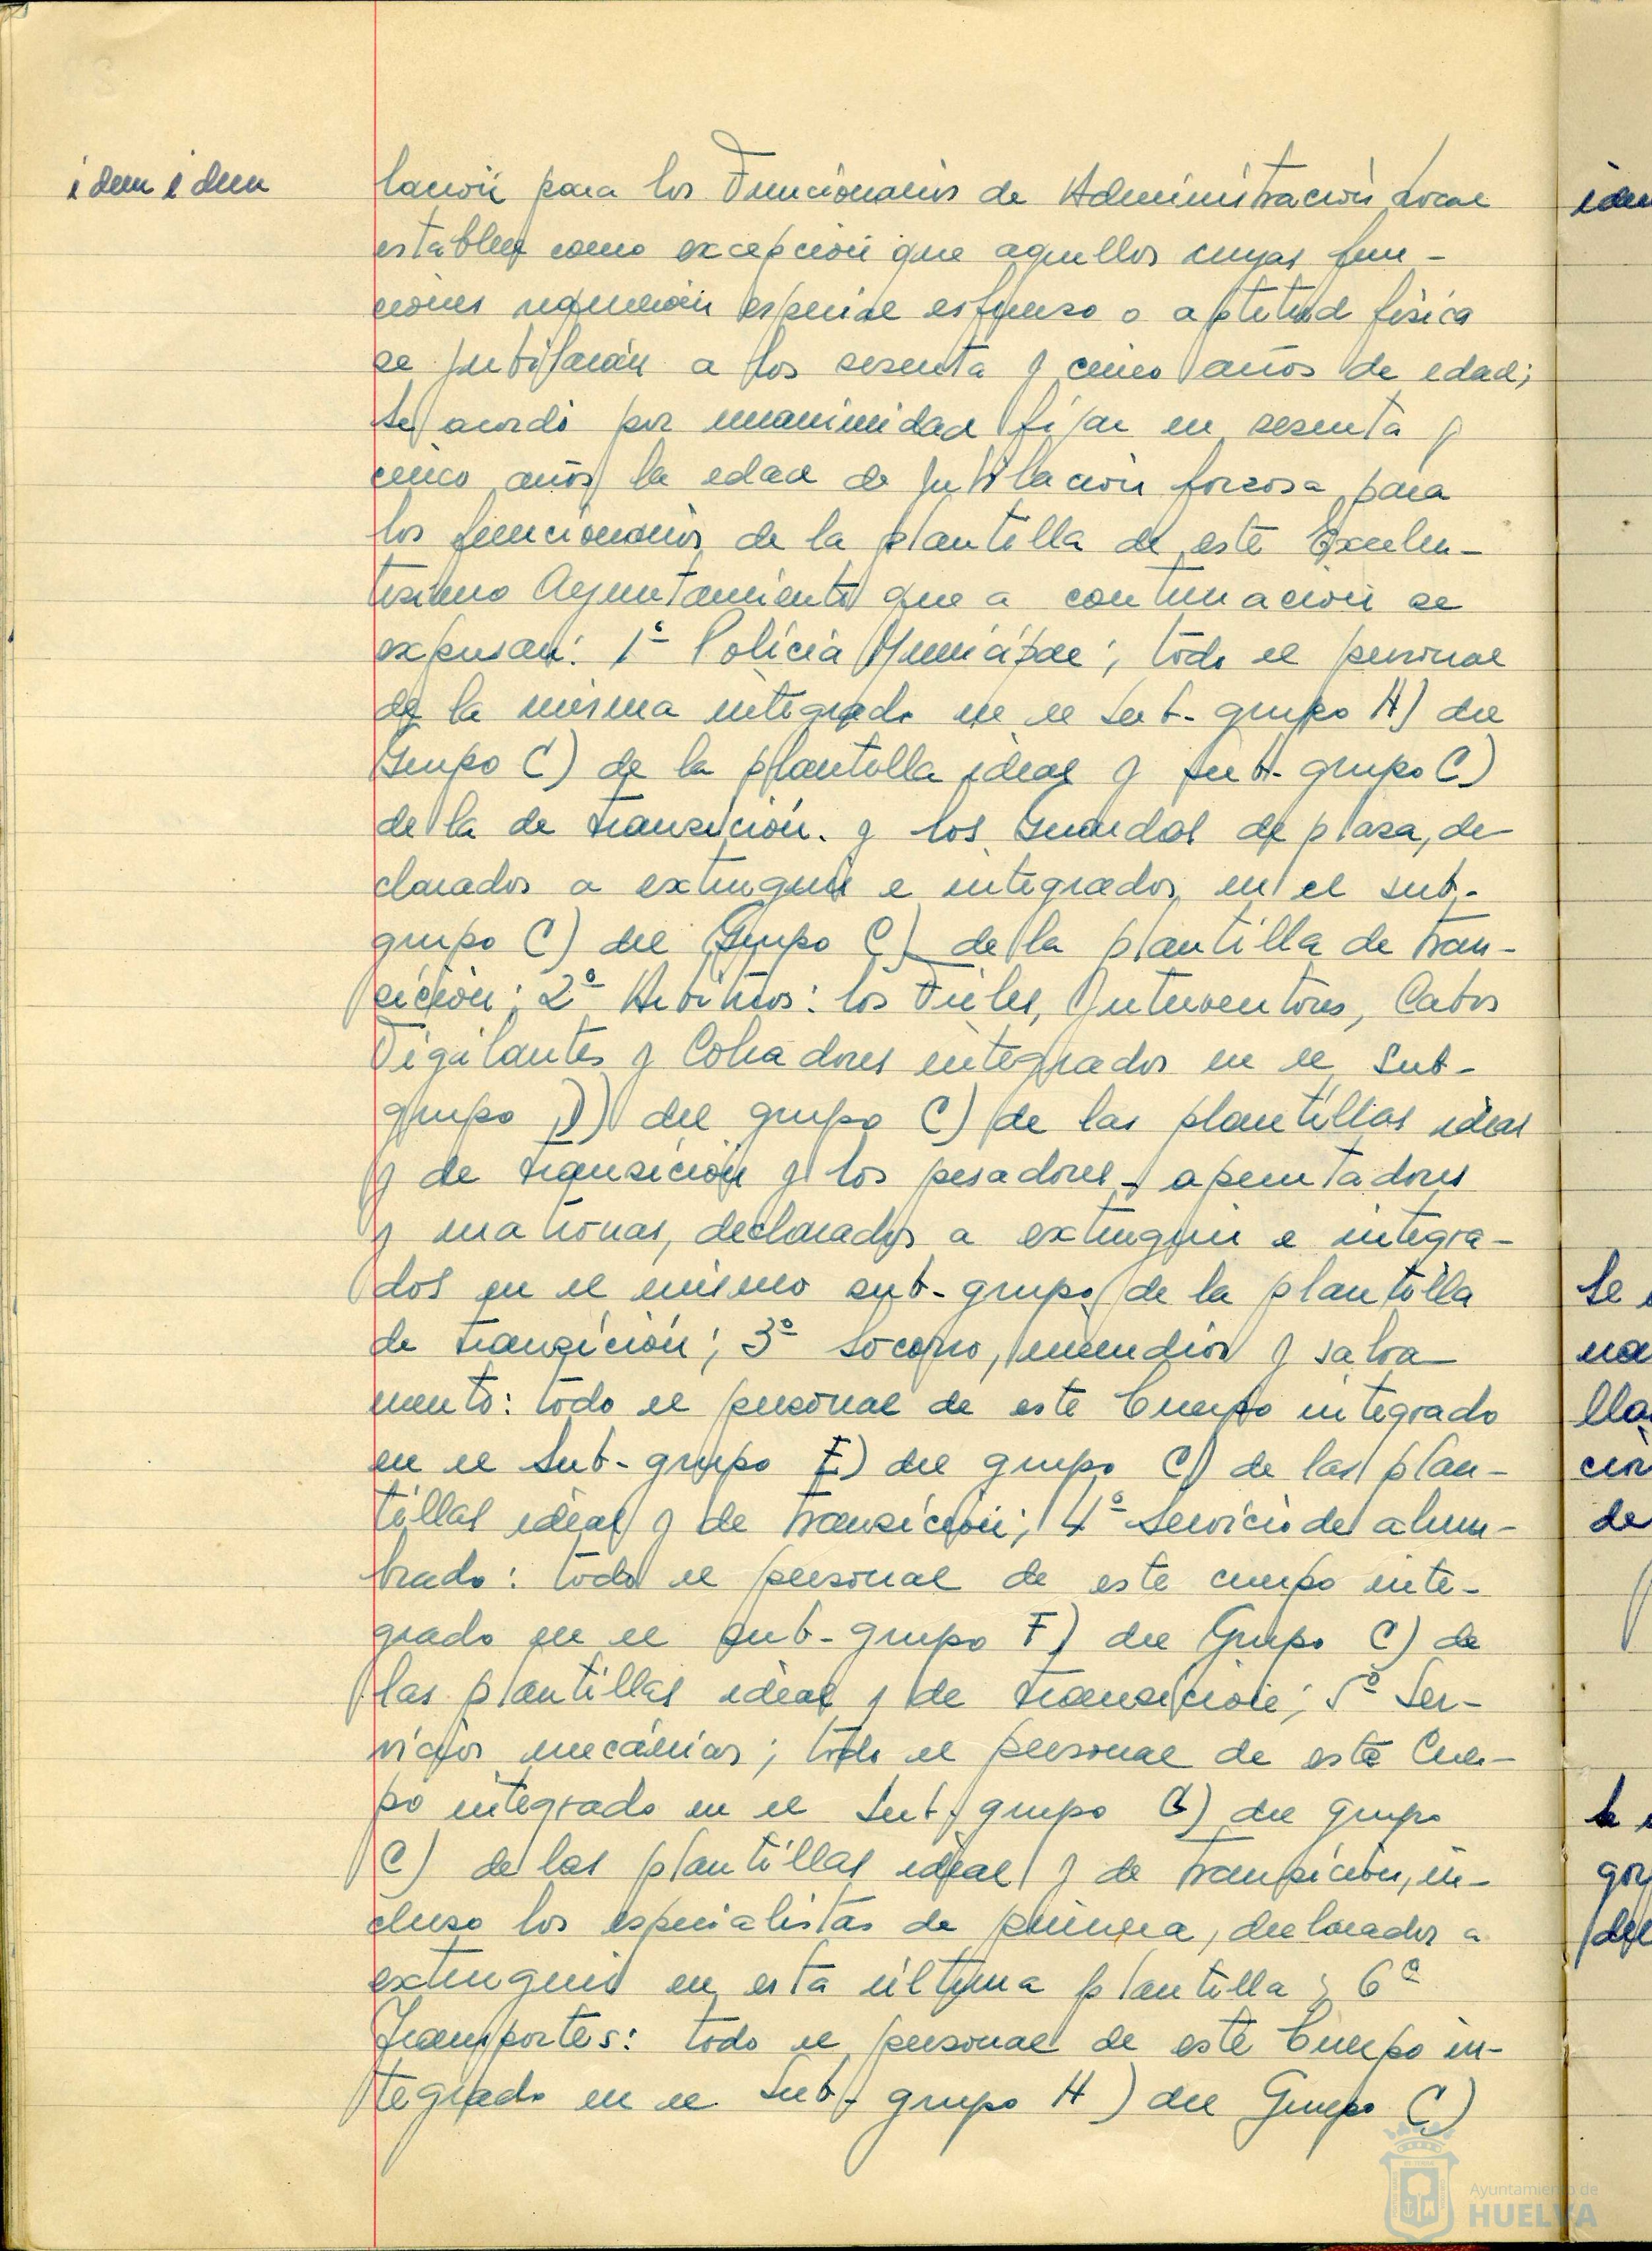 idem idem
lación para los Funcionarios de Administración Local
establece como excepción que aquellos cuyas fun-
ciones requieran especial esfuerzo o aptitud física
se jubilarán a los sesenta y cinco años de edad;
se acordó por unanimidad fijar en sesenta y
cinco años la edad de jubilación forzosa para
los funcionarios de la plantilla de este Excelen-
tisimo Ayuntamiento que a continuacion se
expresan: 1º Policia Municipal; todo el personal
de la misma integrado en el sub-grupo A) del
Grupo C) de la plantilla ideal y sub-grupo C)
de la de transición. y los Guardas de plaza, de-
clarados a extinguir e integrados en el sub-
grupo C) del Grupo C) de la plantilla de tran-
sición; 2º Arbitrios: los Fieles, Interventores, Cabos
Vigilantes y Cobradores integrados en el Sub-
grupo D) del grupo C) de las plantillas ideal
y de transición y los pesadores-apuntadores
y matronas, declarados a extinguir e integra-
dos en el mismo sub-grupo de la plantilla
de transición; 3º Socorro, incendios y salva-
mento: todo el personal de este Cuerpo integrado
en el Sub-grupo E) del grupo C) de las plan-
tillas ideal y de transición; 4º Servicio de alum-
brado: todo el personal de este cuerpo inte-
grado en el sub-grupo F) del Grupo C) de
las plantillas ideal y de transición; 5º Ser-
vicios mecánicos; todo el personal de este Cuer-
po integrado en el Sub-grupo G) del grupo
C) de las plantillas ideal y de transición, in-
cluso los especialistas de primera, declarados a
extinguir en esta última plantilla; 6º
Transportes: todo el personal de este Cuerpo in-
tegrado en el Sub-grupo H) del Grupo C)
Ayuntamiento de
HUELVA